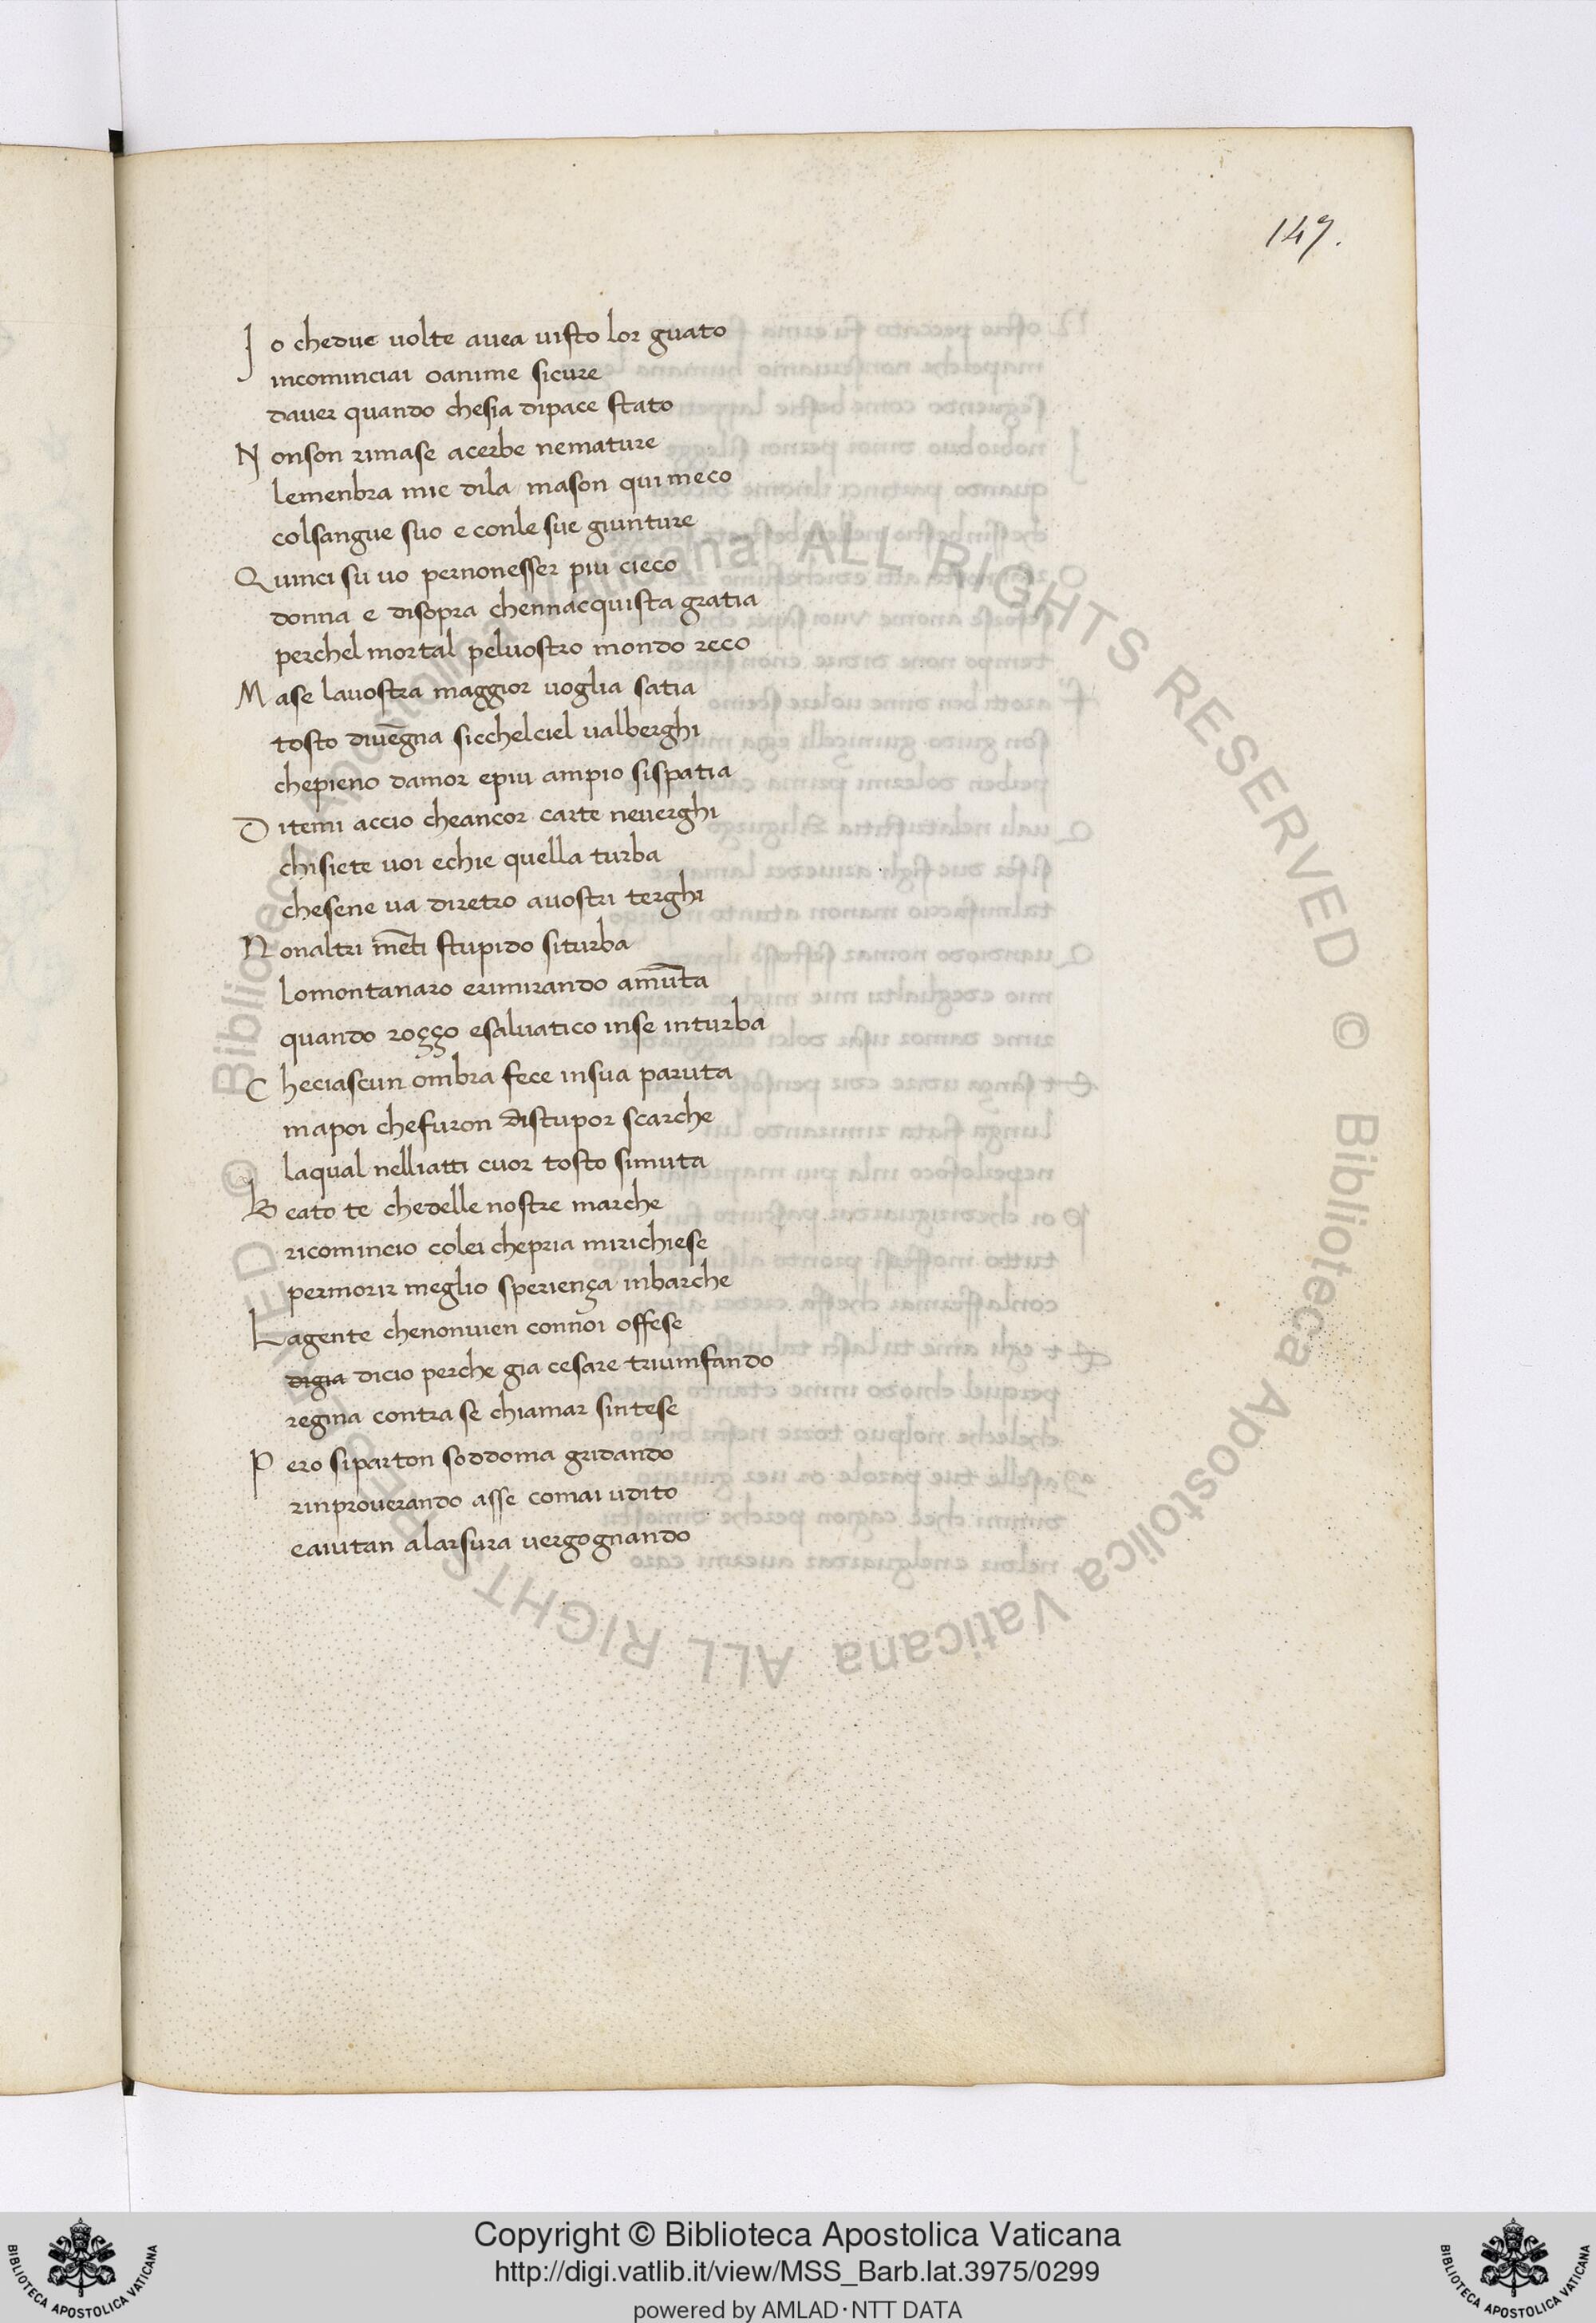 149.
Jo chedue uolte auea uisto lor guato
incominciai oanime sicure
dauer quando chesia dipace stato
Nonson rimase acerbe nemature
lemenbra mie dila mason qui meco
colsangue suo e conle sue giunture
Quinci su uo pernonesser piu cieco
donna e disopra chennacquista gratia
perchel mortal peluostro mondo reco
Mase lauostra maggior uoglia satia
tosto diuēgna sicchelciel ualberghi
chepieno damor epiu ampio sispatia
Ditemi accio cheancor carte neuerghi
chisiete uoi echie quella turba
chesene ua diretro auostri terghi
Nonaltri mēti stupido siturba
lomontanaro erimirando amūta
quando roççо esaluatico inse inturba
Checiascun ombra fece insua paruta
mapoi chefuron distupor scarche
laqual nelliatti cuor tosto simuta
Beato te chedelle nostre marche
ricomincio colei chepria mirichiese
permorir meglio speriença inbarche
Lagente chenonuien connoi offese
digia dicio perche gia cesare triumfando
regina contra se chiamar sintese
Pero siparton soddoma gridando
rinprouerando asse comai udito
eaiutan alarsura vergognando
© Biblioteca Apostolica Vaticana ALL RIGHTS RESERVED © Biblioteca Apostolica Vaticana ALL RIGHTS RESERVED
Copyright © Biblioteca Apostolica Vaticana
http://digi.vatlib.it/view/MSS_Barb.lat.3975/0299
powered by AMLAD·NTT DATA
BIBLIOTECA APOSTOLICA VATICANA
BIBLIOTECA APOSTOLICA VATICANA